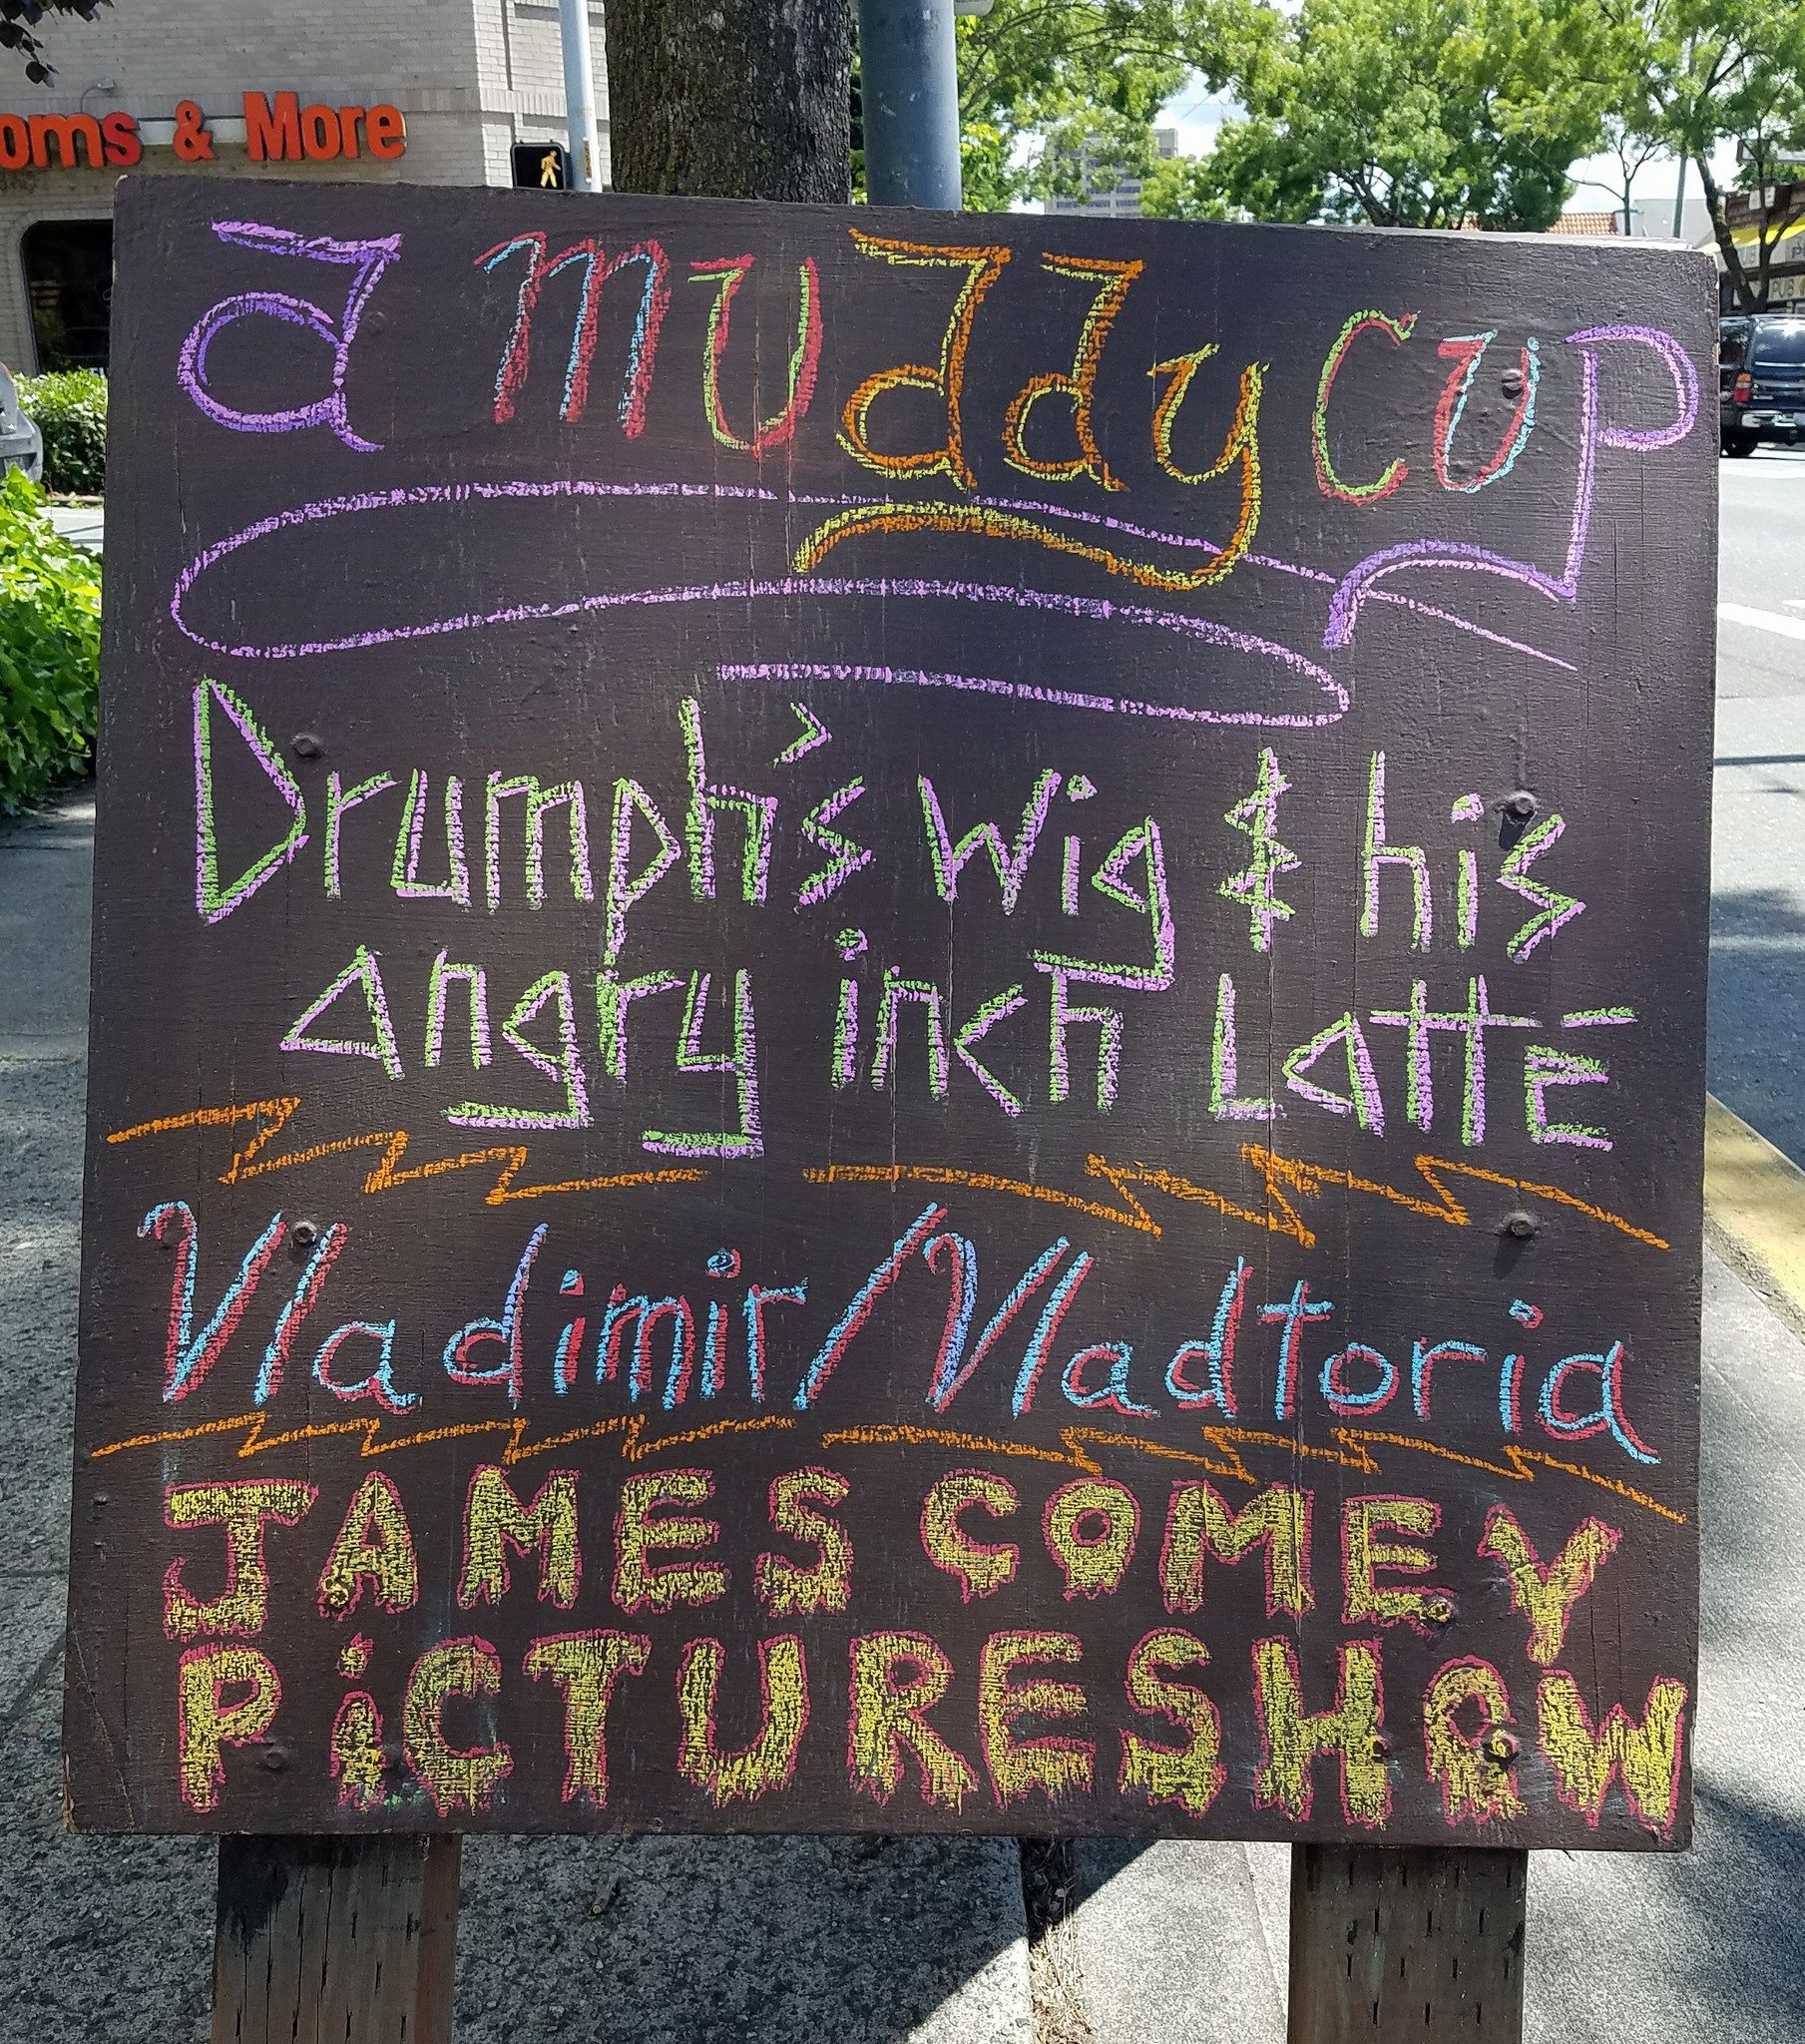 oms & More
a muddy cup
Drumph's Wig & his
angry inch Latte
Vladimir/Vladtoria
JAMES COMEY
PiCTURESHOW
PUB